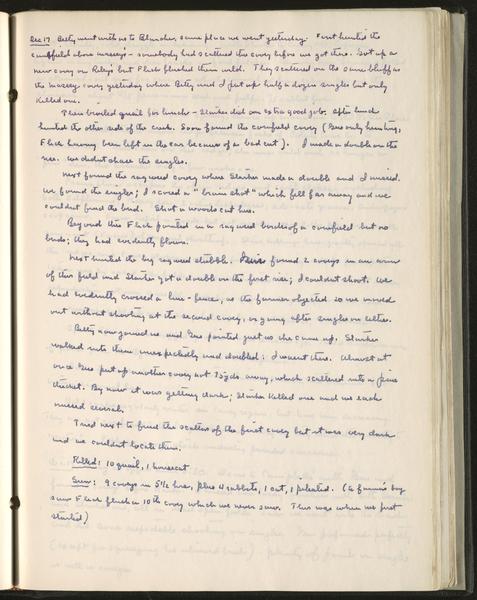 Dec 17 Betty went with us to Blanches, same place we went yesterday. First hunted the
cornfield above massey's - somebody had scattered the covey before we got there. Got up a
new covey on Rileys but Flash flushed them wild. They scattered on the same bluff as
the massey covey yesterday where Betty and I put up half a dozen singles but only
killed one.
Then broiled quail for lunch - Starker did an extra good job. After lunch
hunted the other side of the creek. Soon found the cornfield covey (Gus only hunting,
Flash having been left in the car because of a bad cut). I made a double on the
rise. We didnt chase the singles.
Next found the ragweed covey where Starker made a double and I missed.
We found the singles; I scored a "brain shot" which fell far away and we
couldnt find the bird. Shot a woods cat here.
Beyond this Flash pointed in a ragweed border of a cornfield but no
birds; they had evidently flown.
Next hunted the big ragweed stubble. Gus found 2 coveys in an arm
of this field and Starker got a double on the first rise; I couldnt shoot. We
had evidently crossed a line-fence, as the farmer objected so we moved
out without shooting at the second covey, or going after singles on either.
Betty now joined us and Gus pointed just as she came up. Starker
walked into them unexpectedly and doubled; I wasnt there. Almost at
once Gus put up another covey not 75 yds. away, which scattered into a pine
thicket. By now it was getting dark; Starker killed one and we each
missed several.
Tried next to find the scatters of the first covey but it was very dark
and we couldnt locate them.
Killed: 10 quail, 1 housecat
Saw: 9 coveys in 5½ hrs, plus 4 rabbits, 1 cat, 1 pileated. (A farmer's boy
saw Flash flush a 10th covey which we never saw. This was when we first
started)